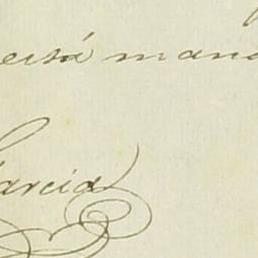 está mand
Garcia